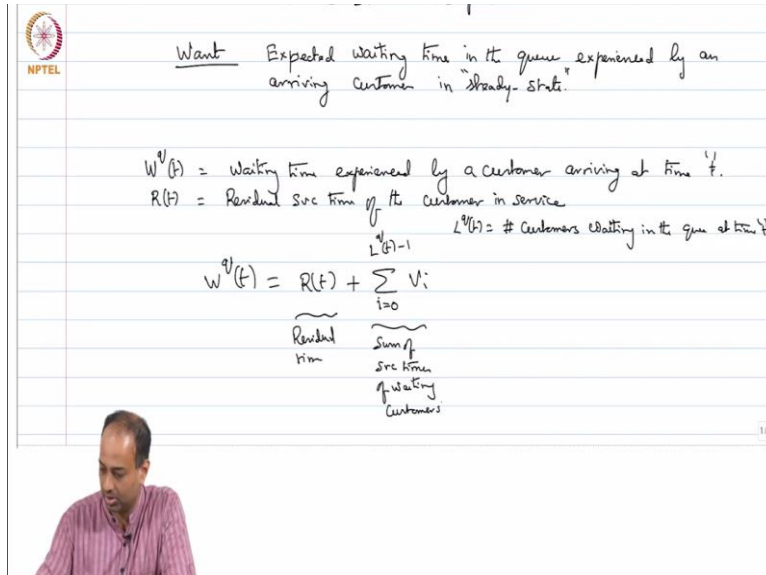 NPTEL
Want Expected waiting time in the queue experienced by an
arriving customer in "steady-state."
W^q(t) = Waiting time experienced by a customer arriving at time 't'.
R(t) = Residual svc time of the customer in service
L^q(t) = # Customers waiting in the queue at time 't'
W^q(t) = R(t) + \sum_{i=0}^{L^q(t)-1} V_i
Residual
time
Sum of
svc times
of waiting
customers